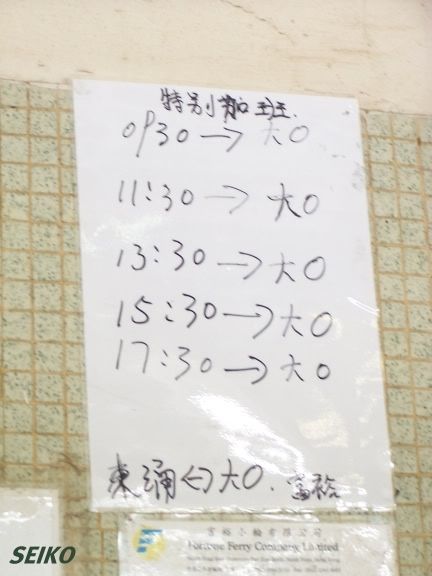 特别加班.
0930→大O
11:30→大O
13:30→大O
15:30→大O
17:30→大O
東涌⇔大O.富裕
富裕小輪有限公司
Fortune Ferry Company Limited
SEIKO